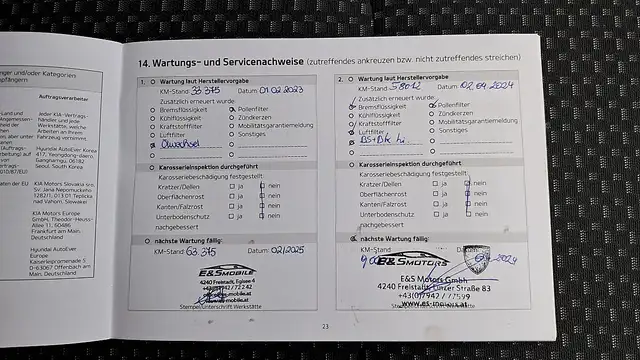 14. Wartungs- und Servicenachweise (zutreffendes ankreuzen bzw. nicht zutreffendes streichen)
1. Wartung laut Herstellervorgabe
KM-Stand 33 375 Datum: 01.02.2023
Zusätzlich erneuert wurde:
Bremsflüssigkeit Pollenfilter
Kühlflüssigkeit Zündkerzen
Kraftstofffilter Mobilitätsgarantiemeldung
Luftfilter Sonstiges
Ölwechsel
Karosserieinspektion durchgeführt
Karosseriebeschädigung festgestellt:
Kratzer/Dellen ja nein
Oberflächenrost ja nein
Kanten/Falzrost ja nein
Unterbodenschutz ja nein
nachgebessert
nächste Wartung fällig:
KM-Stand 63.375 Datum: 02/2025
E&S MOBILE
4240 Freistadt,
Stempel/Unterschrift Werkstätte
2. Wartung laut Herstellervorgabe
KM-Stand 58012 Datum
Zusätzlich erneuert wurde:
Bremsflüssigkeit Pollenfilter
Kühlflüssigkeit Zündkerzen
Kraftstofffilter Mobilitätsgarantiemeldung
Luftfilter Sonstiges
Karosserieinspektion durchgeführt
Karosseriebeschädigung festgestellt:
Kratzer/Dellen ja nein
Oberflächenrost ja nein
Kanten/Falzrost ja nein
Unterbodenschutz ja nein
nachgebessert
nächste Wartung fällig:
KM-Stand
E&S MOTORS
E&S Motors GmbH
4240 Freistadt, Linzer Straße 83
+43(0)7942 / 77599
www.es-motors.at
Stempel/Unterschrift Werkstätte
23
Auftragsverarbeiter
Jeder KIA-Vertrags-
Hyundai AutoEver Korea
417, Yeongdong-daero,
Gangnam-gu, 06182
Seoul, South Korea
KIA Motors Slovakia sro
Sv. Jana Nepomuckeho
1282/1, 013 01 Teplicka
nad Vahom, Slowakei
KIA Motors Europe
GmbH, Theodor-Heuss-
Allee 11, 60486
Frankfurt am Main,
Deutschland
Hyundai AutoEver
Europe
Kaiserleipromenade 5
D-63067 Offenbach am
Main, Deutschland